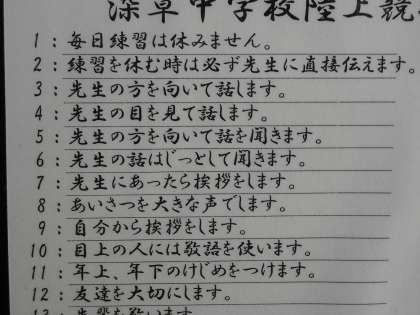 深草中学校陸上競
1：毎日練習は休みません。
2：練習を休む時は必ず先生に直接伝えます。
3：先生の方を向いて話します。
4：先生の目を見て話します。
5：先生の方を向いて話を聞きます。
6：先生の話はじっとして聞きます。
7：先生にあったら挨拶をします。
8：あいさつを大きな声でします。
9：自分から挨拶をします。
10：目上の人には敬語を使います。
11：年上、年下のけじめをつけます。
12：友達を大切にします。
13：先輩を敬います。